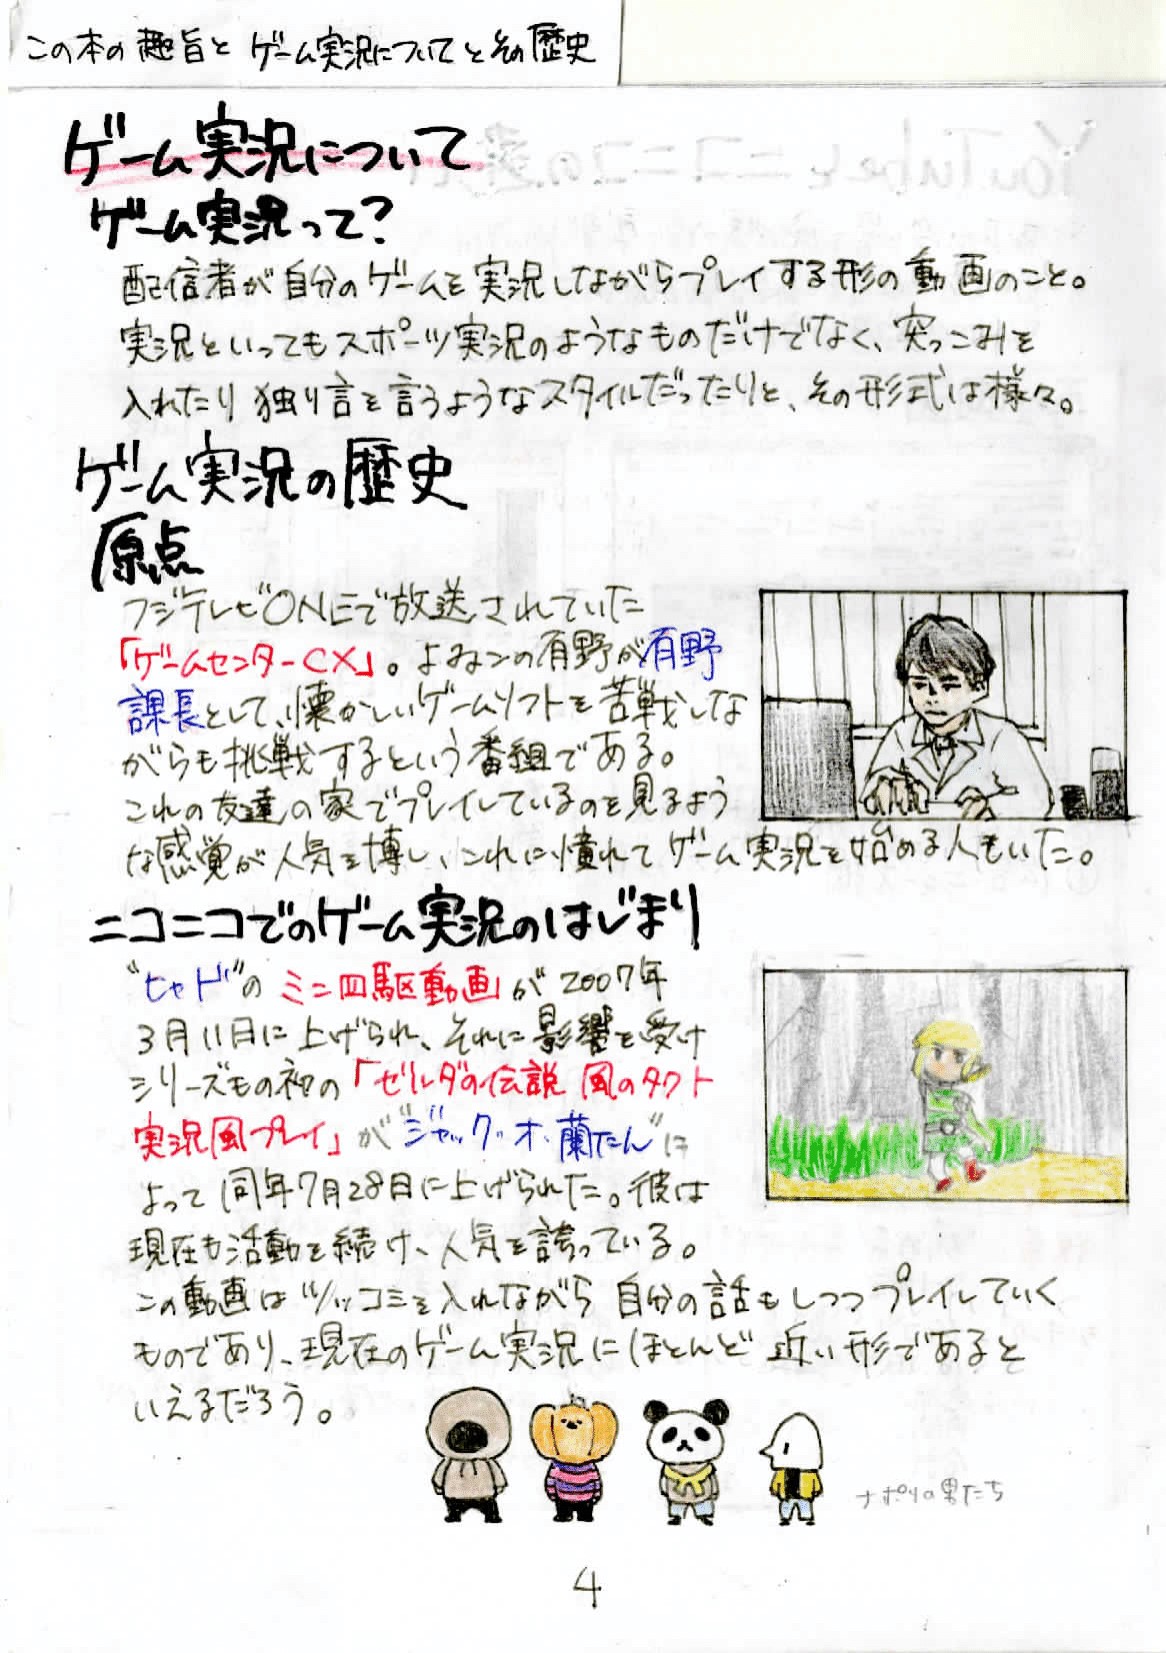 この本の趣旨と ゲーム実況についてとその歴史
ゲーム実況について
ゲーム実況って?
配信者が自分のゲームを実況しながらプレイする形の動画のこと。
実況といってもスポーツ実況のようなものだけでなく、突っこみを
入れたり独り言を言うようなスタイルだったりと、その形式は様々。
ゲーム実況の歴史
原点
フジテレビONEで放送されていた
「ゲームセンターCX」。よゐこの有野が有野
課長として、懐かしいゲームソフトを苦戦しな
がらも挑戦するという番組である。
これの友達の家でプレイしているのを見るよう
な感覚が人気を博し、これに憧れてゲーム実況を始める人もいた。
ニコニコでのゲーム実況のはじまり
"ヒャド"のミニ四駆動画が2007年
3月11日に上げられ、それに影響を受け
シリーズもの初の「ゼルダの伝説 風のタクト
実況風プレイ」が"ジャック・オ・蘭たん"に
よって同年7月28日に上げられた。彼は
現在も活動を続け、人気を誇っている。
この動画はツッコミを入れながら自分の話もしつつプレイしていく
ものであり、現在のゲーム実況にほとんど近い形であると
いえるだろう。
ナポリの男たち
4